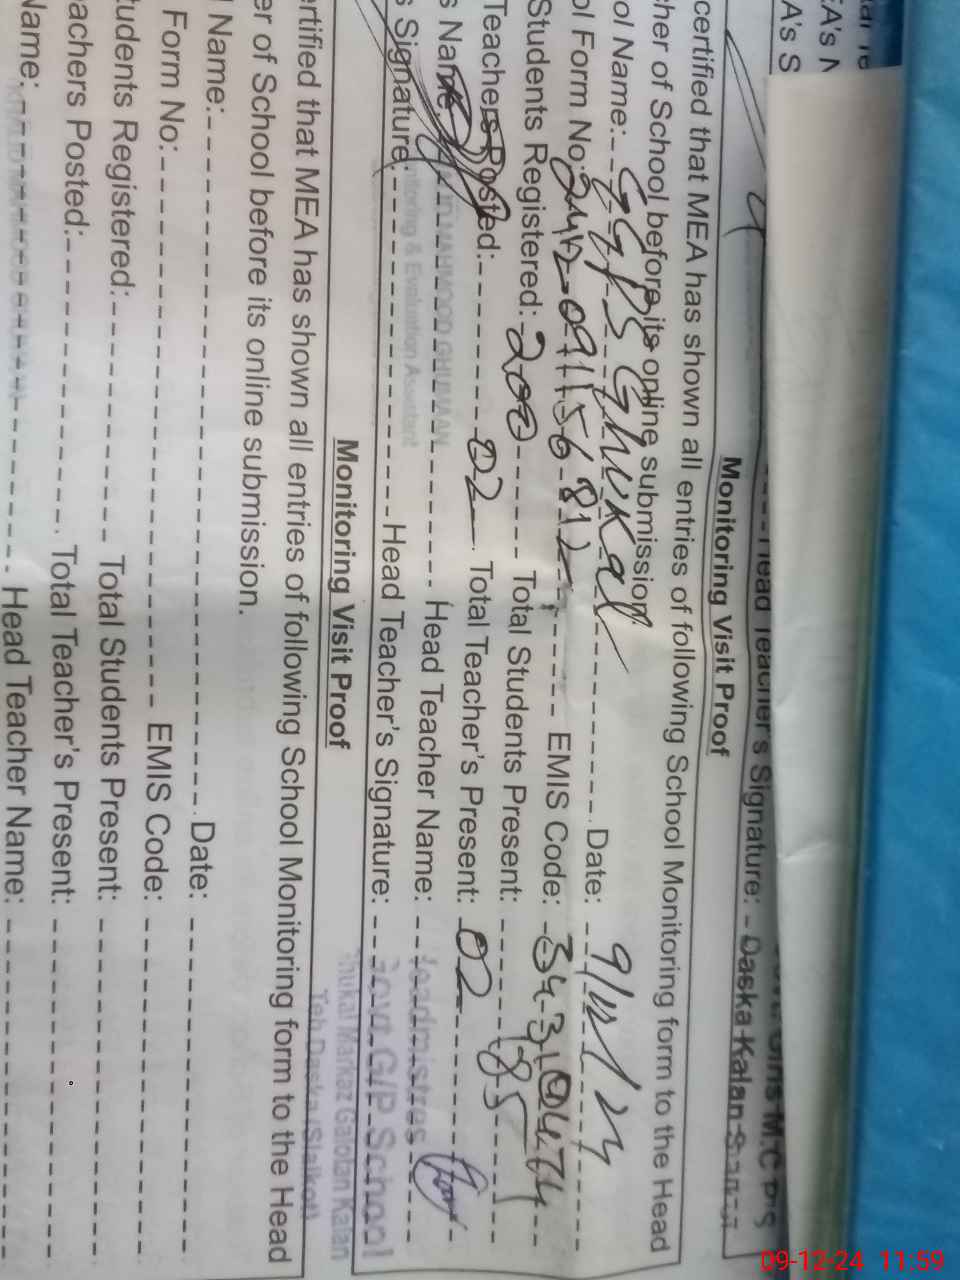 EA's N
A's S
Head Teacher's Signature: - Daska Kalan
Monitoring Visit Proof
certified that MEA has shown all entries of following School Monitoring form to the Head
cher of School before its online submission
ol Name: GGPS Ghukal Date: 9/12/24
ol Form No: EMIS Code: 34310474
Students Registered: 200 Total Students Present: 185
Teachers Posted: 02 Total Teacher's Present: 02
s Name: MAHMOOD GHUMAN Head Teacher Name: Headmistres
itoring & Evaluation Assistant
s Signature: Head Teacher's Signature: Govt. G/P School
Ghukal Markaz Galotian Kalan
Teh Daska (Sialkot)
Monitoring Visit Proof
ertified that MEA has shown all entries of following School Monitoring form to the Head
er of School before its online submission.
l Name: Date:
Form No: EMIS Code:
tudents Registered: Total Students Present:
eachers Posted: Total Teacher's Present:
Name: Head Teacher Name:
09-12-24 11:59